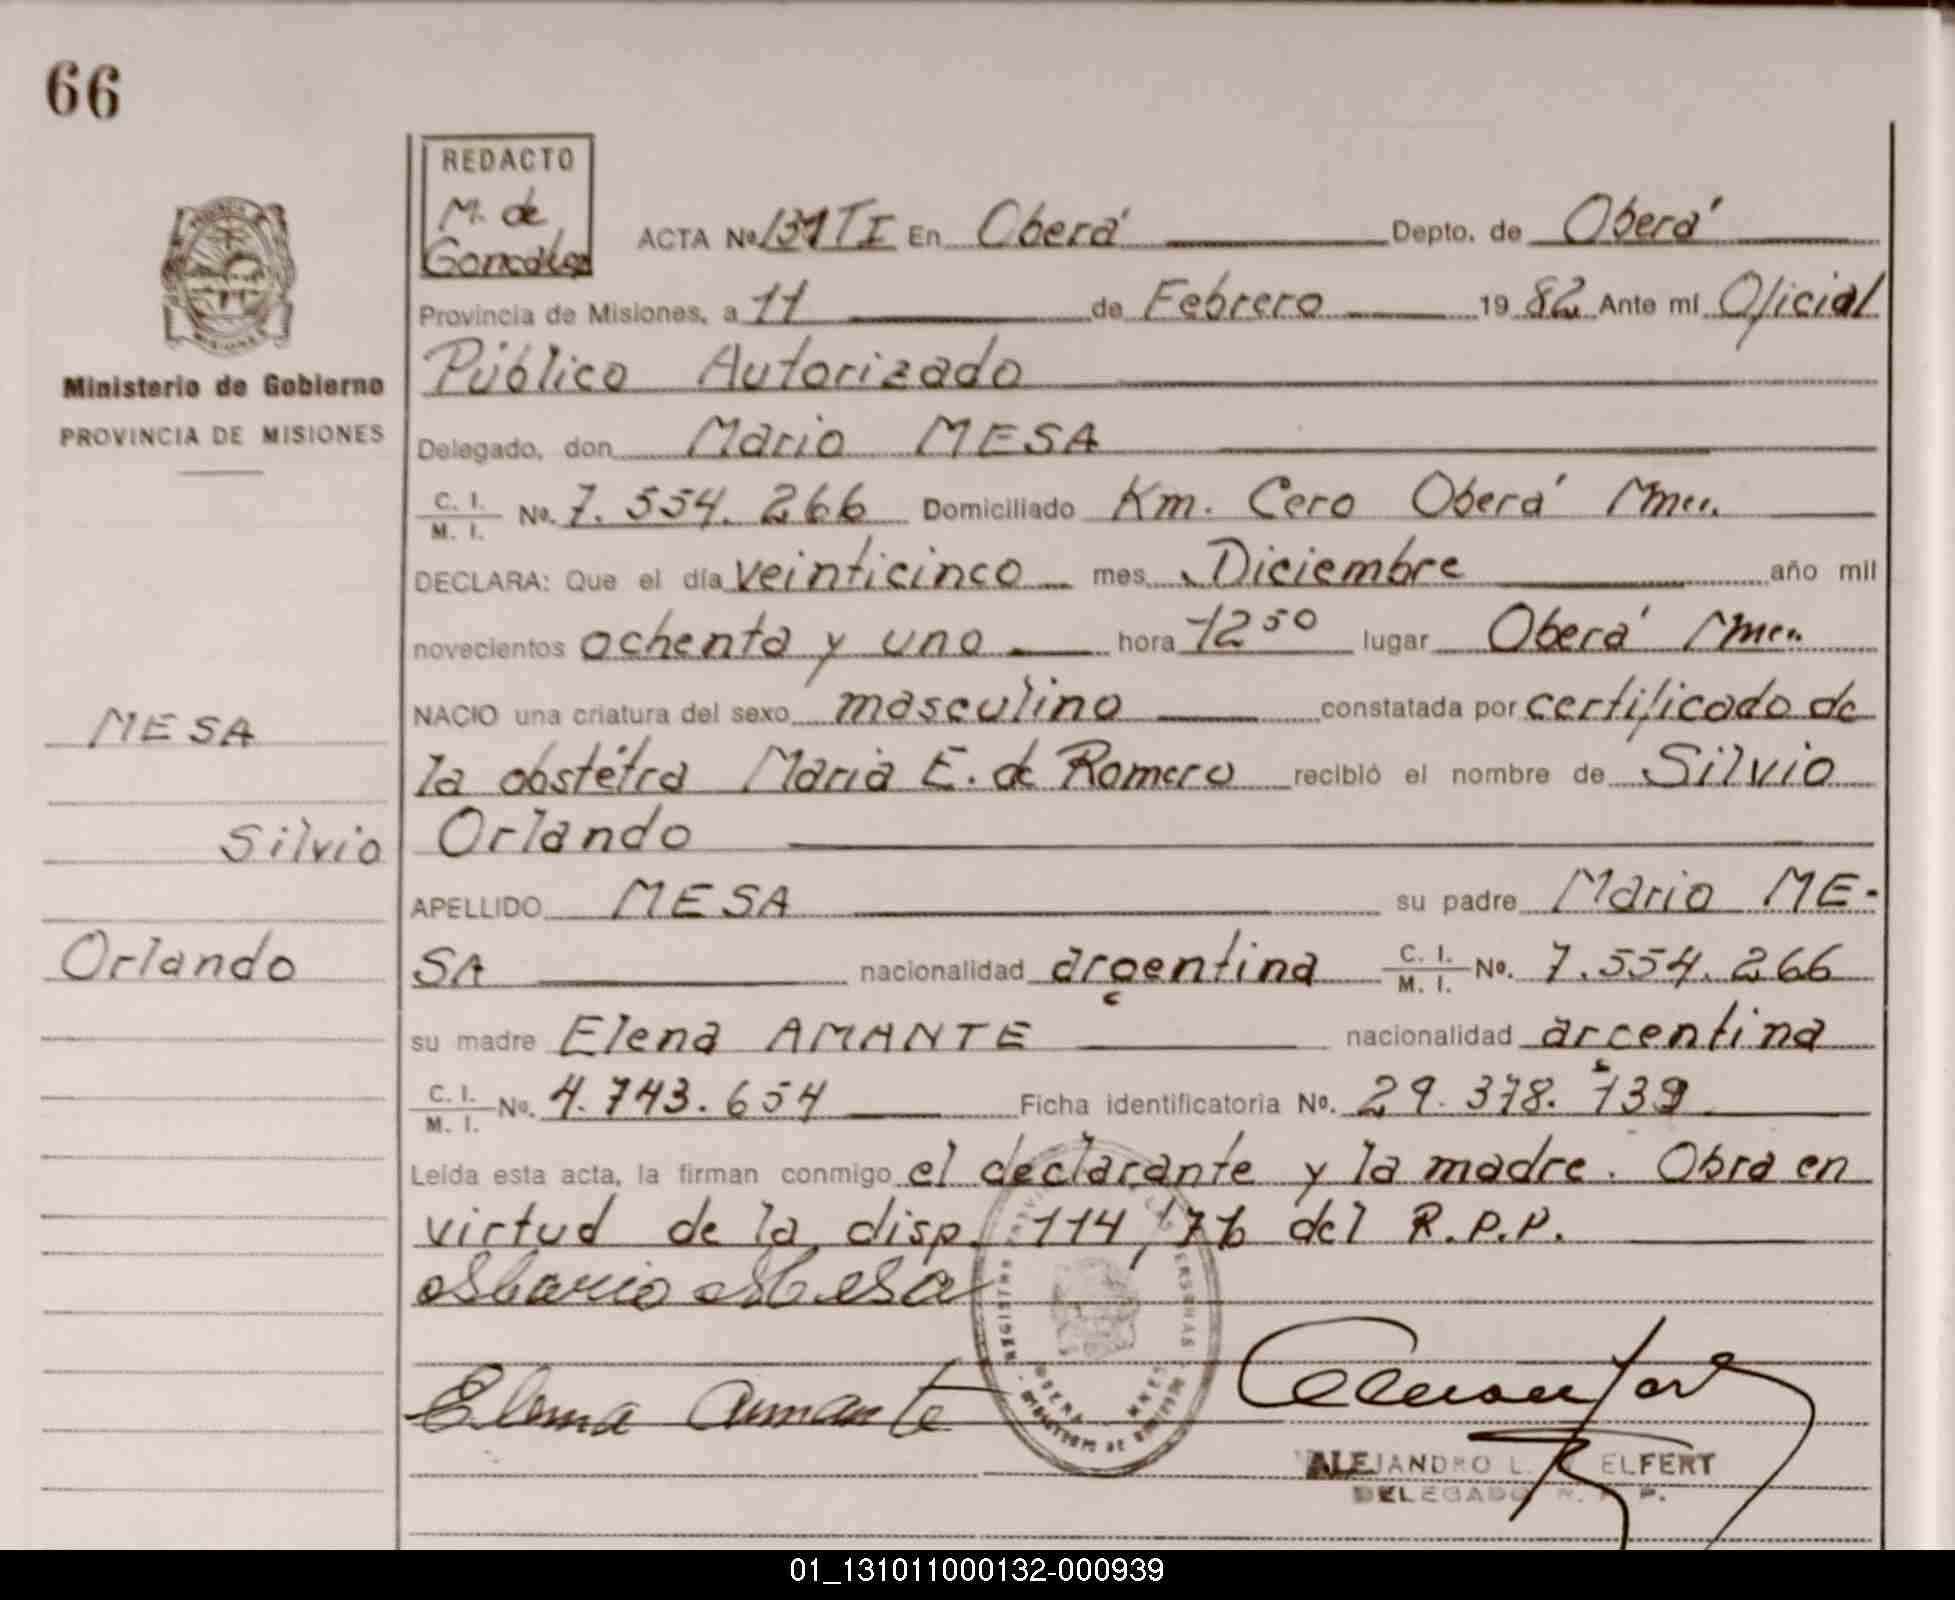 66
REDACTO
M. de
Gonzales
ACTA Nº 131TI En Oberá Depto. de Oberá
Provincia de Misiones, a 11 de Febrero 1982 Ante mí Oficial
Público Autorizado
Ministerio de Gobierno
PROVINCIA DE MISIONES
Delegado, don Mario MESA
C. I. / M. I. Nº. 7.554.266 Domiciliado Km. Cero Oberá Mnes.
DECLARA: Que el día veinticinco mes Diciembre año mil
novecientos ochenta y uno hora 12 50 lugar Oberá Mnes.
NACIO una criatura del sexo masculino constatada por certificado de
la obstétra Maria E. de Romero recibió el nombre de Silvio
Orlando
MESA
Silvio
Orlando
APELLIDO MESA su padre Mario ME-
SA nacionalidad argentina C. I. / M. I. Nº. 7.554.266
su madre Elena AMANTE nacionalidad argentina
C. I. / M. I. Nº. 4.743.654 Ficha identificatoria Nº. 29.378.739
Leída esta acta, la firman conmigo el declarante y la madre. Obra en
virtud de la disp. 114/76 del R.P.P.
Mario Mesa
Elena Amante
REGISTRO DE LAS PERSONAS
OBERA MNES
ALEJANDRO L. ELFERT
DELEGADO R. P. P.
01_131011000132-000939